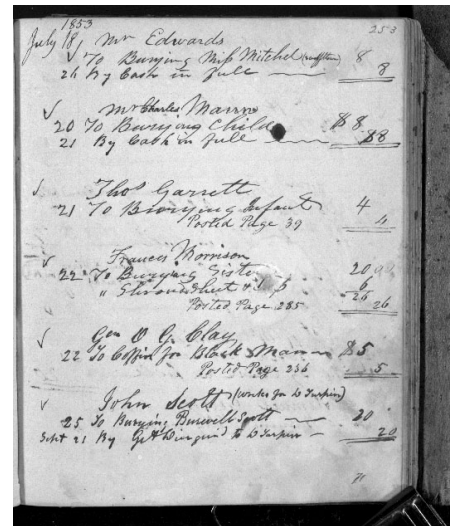 1853 253
July 18 Mr Edwards
✓ To Burying Miss Mitchel 8
26 By Cash in full 8
✓ Mr Charles Mann
20 To Burying Child $8
21 By Cash in full $8
✓ Thos Garrett
21 To Burying Infant 4
Posted Page 39 4
✓ Frances Morrison
22 To Burying Sister 20
" Shroud Sheet 6
26
Posted Page 285 26
✓ Geo O G. Clay
22 To Coffin for Black Man $5
Posted Page 236 5
✓ John Scott (works for D Turpin)
25 To Burying Burwell Scott 20
Sept 21 By Geo Duiguid to D Turpin 20